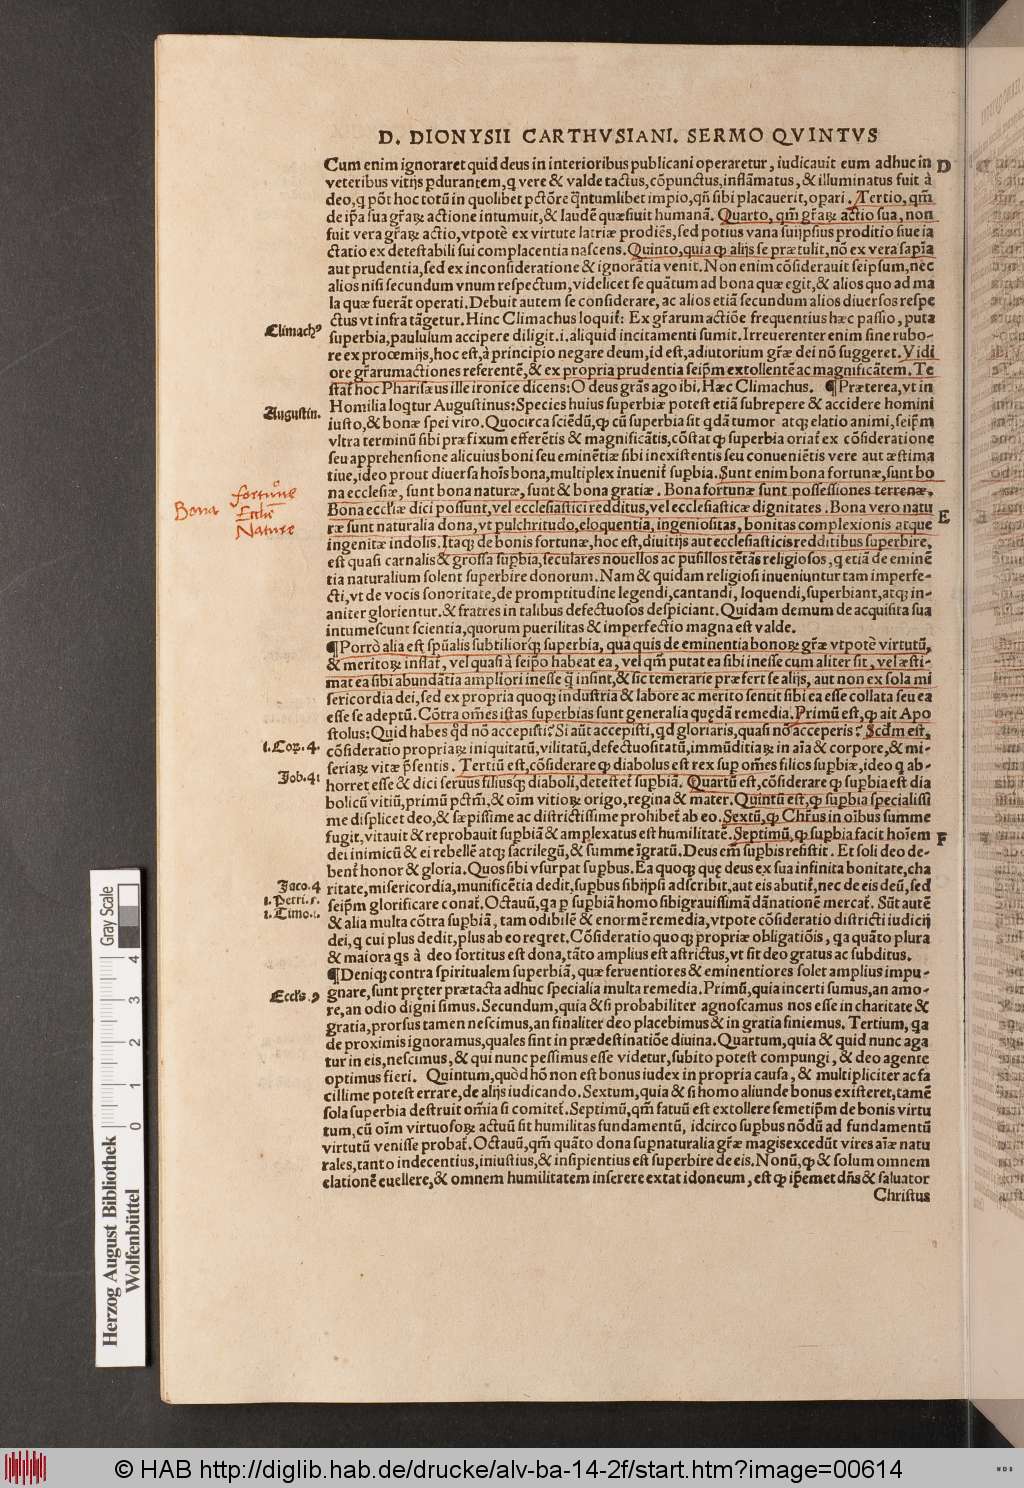 D. DIONYSII CARTHVSIANI. SERMO QVINTVS
Cum enim ignoraret quid deus in interioribus publicani operaretur, iudicauit eum adhuc in D
veteribus vitijs ꝑdurantem, q vere & valde tactus, cōpunctus, inflāmatus, & illuminatus fuit à
deo, q põt hoc totū in quolibet pctōre q̃ntumlibet impio, qñ sibi placauerit, opari. Tertio, qm̃
de ip̃a sua gr̃aꝝ actione intumuit, & laudē quæsiuit humanā. Quarto, qm̃ gr̃aꝝ actio sua, non
fuit vera gr̃aꝝ actio, vtpotè ex virtute latriæ prodiēs, sed potius vana suijpsius proditio siue ia
ctatio ex detestabili sui complacentia nascens. Quinto, quia ꝙ alijs se prætulit, nō ex vera sapīa
aut prudentia, sed ex inconsideratione & ignorātia venit. Non enim cōsiderauit seipsum, nec
alios nisi secundum vnum respectum, videlicet se quātum ad bona quæ egit, & alios quo ad ma
la quæ fuerāt operati. Debuit autem se considerare, ac alios etiā secundum alios diuersos respe
ctus vt infra tāgetur. Hinc Climachus loquit̃: Ex gr̃arum actiōe frequentius hæc passio, puta
Climachꝰ superbia, paululum accipere diligit. i. aliquid incitamenti sumit. Irreuerenter enim sine rubo-
re ex proœmijs, hoc est, à principio negare deum, id est, adiutorium gr̃æ dei nō suggeret. Vidi
ore gr̃arumactiones referentē, & ex propria prudentia seip̃m extollentē ac magnificātem. Te
stat̃ hoc Pharisæus ille ironice dicens: O deus grãs ago tibi. Hæc Climachus. ¶ Præterea, vt in
Augustin. Homilia loqtur Augustinus: Species huius superbiæ potest etiā subrepere & accidere homini
iusto, & bonæ spei viro. Quocirca sciēdū, ꝙ cū superbia sit qdā tumor atq; elatio animi, seip̃m
vltra terminū sibi præfixum efferētis & magnificātis, cōstat ꝙ superbia oriat̃ ex cōsideratione
seu apprehensione alicuius boni seu eminētiæ sibi inexistentis seu conueniētis vere aut æstima
tiue, ideo prout diuersa hoĩs bona, multiplex inuenit̃ supbia. Sunt enim bona fortunæ, sunt bo
na ecclesiæ, sunt bona naturæ, sunt & bona gratiæ. Bona fortunæ sunt possessiones terrenæ.
Bona fortunæ Ecclīe Naturæ
Bona eccl'iæ dici possunt, vel ecclesiastici redditus, vel ecclesiasticæ dignitates. Bona vero natu E
ræ sunt naturalia dona, vt pulchritudo, eloquentia, ingeniositas, bonitas complexionis atque
ingenitæ indolis. Itaq; de bonis fortunæ, hoc est, diuitijs aut ecclesiasticis redditibus superbire,
est quasi carnalis & grossa supbia, seculares nouellos ac pusillos tētās religiosos, q etiā de eminē
tia naturalium solent superbire donorum. Nam & quidam religiosi inueniuntur tam imperfe-
cti, vt de vocis sonoritate, de promptitudine legendi, cantandi, loquendi, superbiant, atq; in-
aniter glorientur, & fratres in talibus defectuosos despiciant. Quidam demum de acquisita sua
intumescunt scientia, quorum puerilitas & imperfectio magna est valde.
¶ Porrò alia est sp̃ualis subtiliorq; superbia, qua quis de eminentia bonoꝝ gr̃æ vtpotè virtutū,
& meritoꝝ inflat̃, vel quasi à seip̃o habeat ea, vel qm̃ putat ea sibi inesse cum aliter sit, vel æsti-
mat ea sibi abundātia ampliori inesse q̃ insint, & sic temerarie præfert se alijs, aut non ex sola mi
sericordia dei, sed ex propria quoq; industria & labore ac merito sentit sibi ea esse collata seu ea
esse se adeptū. Cōtra om̃es istas superbias sunt generalia quędā remedia. Primū est, ꝙ ait Apo
stolus: Quid habes q̊d nō accepisti? Si aūt accepisti, qd gloriaris, quasi nō acceperis? Scd̃m est,
1. Coꝝ. 4. cōsideratio propriaꝝ iniquitatū, vilitatū, defectuositatū, immūditiaꝝ in aĩa & corpore, & mi-
seriaꝝ vitæ p̃sentis. Tertiū est, cōsiderare ꝙ diabolus est rex sup om̃es filios supbiæ, ideo q ab-
Job. 41 horret esse & dici seruus filiusq; diaboli, detestet̃ supbiā. Quartū est, cōsiderare ꝙ supbia est dia
bolicū vitiū, primū pctm̃, & oĩm vitioꝝ origo, regina & mater. Quintū est, ꝙ supbia specialissi
me displicet deo, & sæpissime ac districtissime prohibet̃ ab eo. Sextū, ꝙ Chr̃us in oĩbus summe
fugit, vitauit & reprobauit supbiā & amplexatus est humilitatē. Septimū, ꝙ supbia facit hoĩem F
dei inimicū & ei rebellē atq; sacrilegū, & summe īgratū. Deus em̃ supbis resistit. Et soli deo de-
bent̃ honor & gloria. Quos sibi vsurpat supbus. Ea quoq; quę deus ex sua infinita bonitate, cha
Jaco. 4 ritate, misericordia, munificētia dedit, supbus sibijpsi adscribit, aut eis abutit̃, nec de eis deū, sed
1. Petri. 5. seip̃m glorificare conat̃. Octauū, qa p supbiā homo sibi grauissimā dānationē mercat̃. Sūt autē
1. Timo. 1. & alia multa cōtra supbiā, tam odibilē & enormē remedia, vtpote cōsideratio districti iudicij
dei, q cui plus dedit, plus ab eo reqret. Cōsideratio quoq; propriæ obligatiōis, qa quāto plura
& maiora qs à deo sortitus est dona, tāto amplius est astrictus, vt sit deo gratus ac subditus.
¶ Deniq; contra spiritualem superbiā, quæ feruentiores & eminentiores solet amplius impu-
Eccl's. 9 gnare, sunt pręter prætacta adhuc specialia multa remedia. Primū, quia incerti sumus, an amo-
re, an odio digni simus. Secundum, quia & si probabiliter agnoscamus nos esse in charitate &
gratia, prorsus tamen nescimus, an finaliter deo placebimus & in gratia finiemus. Tertium, qa
de proximis ignoramus, quales sint in prædestinatiōe diuina. Quartum, quia & quid nunc aga
tur in eis, nescimus, & qui nunc pessimus esse videtur, subito potest compungi, & deo agente
optimus fieri. Quintum, quòd hō non est bonus iudex in propria causa, & multipliciter ac fa
cillime potest errare, de alijs iudicando. Sextum, quia & si homo aliunde bonus existeret, tamē
sola superbia destruit om̃ia si comitet̃. Septimū, qm̃ fatuū est extollere semetip̃m de bonis virtu
tum, cū oĩm virtuosoꝝ actuū sit humilitas fundamentū, idcirco supbus nōdū ad fundamentū
virtutū venisse probat̃. Octauū, qm̃ quāto dona supnaturalia gr̃æ magis excedūt vires aĩæ natu
rales, tanto indecentius, iniustius, & insipientius est superbire de eis. Nonū, ꝙ & solum omnem
elationē euellere, & omnem humilitatem inserere extat idoneum, est ꝙ ip̃emet dñs & saluator
Christus
Gray Scale
0 1 2 3 4
Herzog August Bibliothek
Wolfenbüttel
© HAB http://diglib.hab.de/drucke/alv-ba-14-2f/start.htm?image=00614